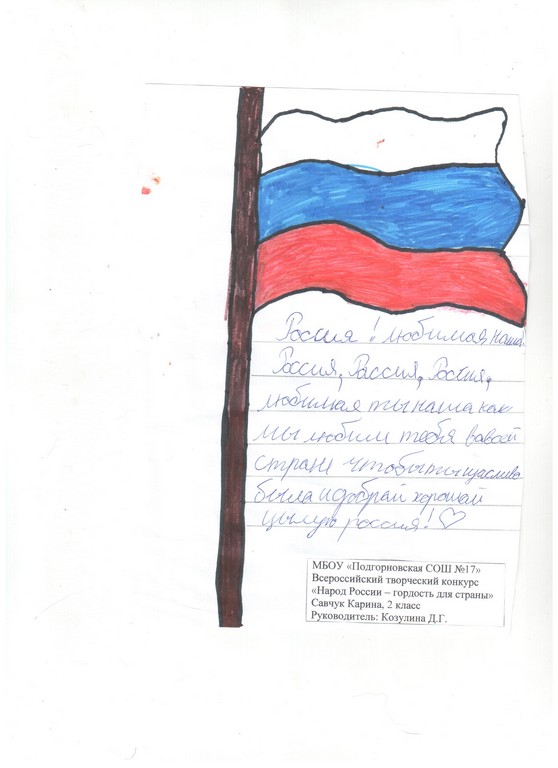 Россия! любимая наша.
Россия, Рассия, Россия,
любимая ты наша как
мы любим тебя вавсй
стране чтобы ты щаслива
была и добрай хорошай
цылую россия! ♡
МБОУ «Подгорновская СОШ №17»
Всероссийский творческий конкурс
«Народ России – гордость для страны»
Савчук Карина, 2 класс
Руководитель: Козулина Д.Г.